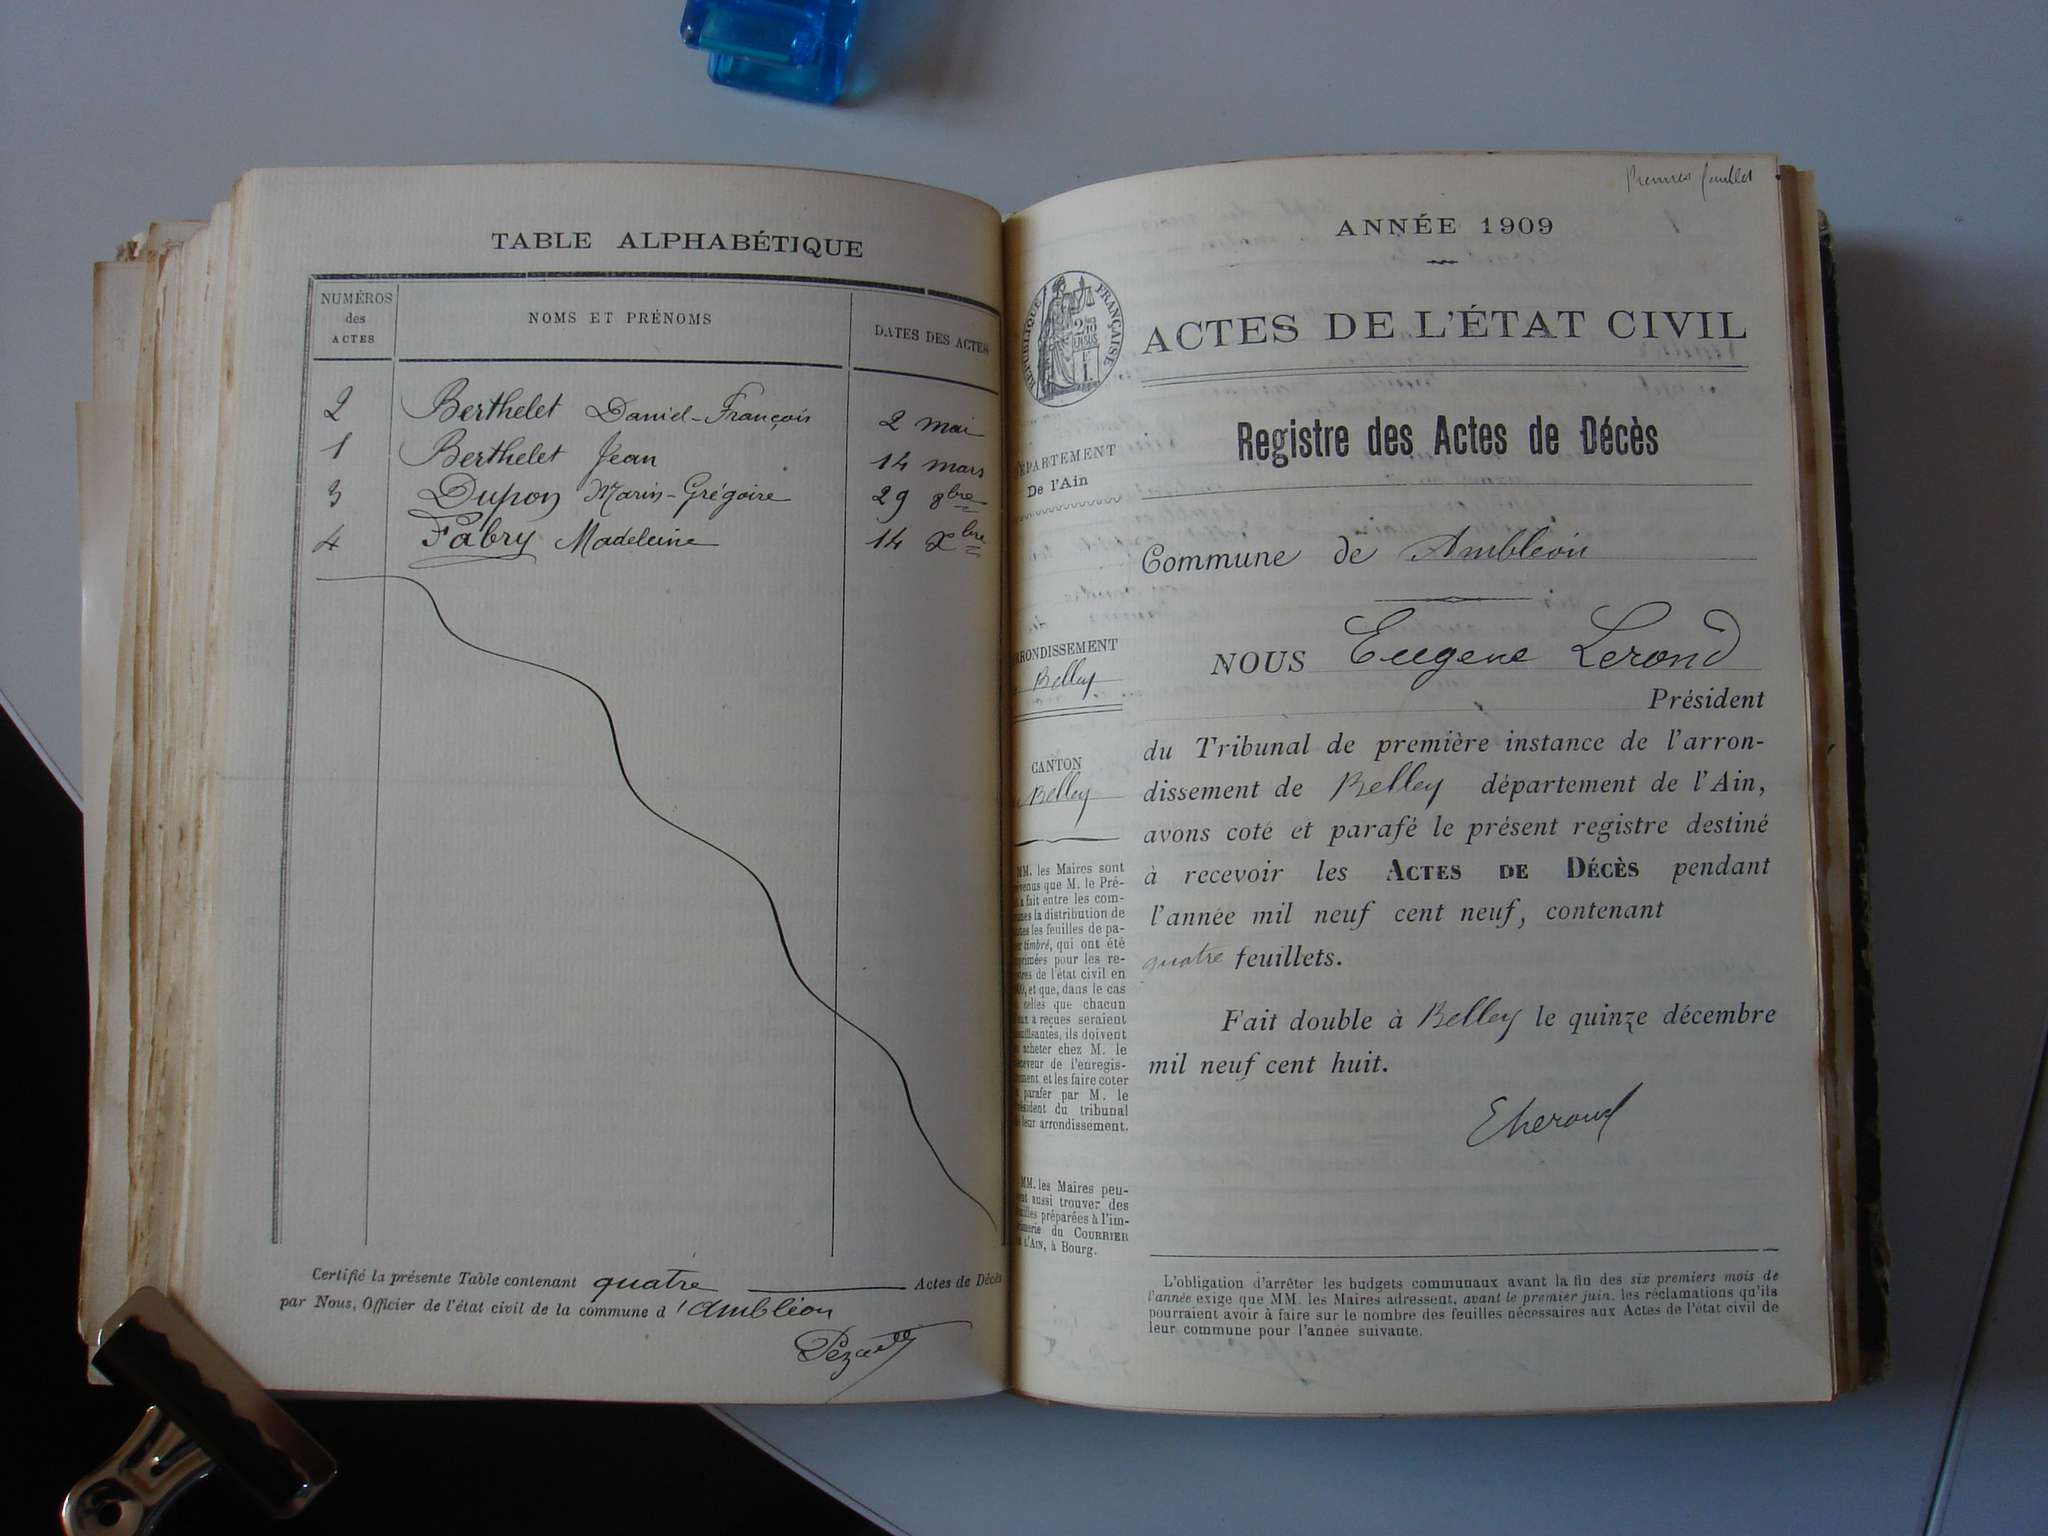 TABLE ALPHABÉTIQUE
NUMÉROS des ACTES
NOMS ET PRÉNOMS
DATES DES ACTES
2 Berthelet Daniel-François 2 mai
1 Berthelet Jean 14 mars
3 Dupon Marin-Grégoire 29 8bre
4 Fabry Madeleine 14 Xbre
Certifié la présente Table contenant quatre Actes de Décès
par Nous, Officier de l'état civil de la commune d'Ambléon
Premier feuillet
ANNÉE 1909
RÉPUBLIQUE FRANÇAISE
ACTES DE L'ÉTAT CIVIL
Registre des Actes de Décès
DÉPARTEMENT
De l'Ain
Commune de Ambléon
ARRONDISSEMENT
Belley
CANTON
Belley
MM. les Maires sont
venus que M. le Pré-
a fait entre les com-
la distribution de
les feuilles de pa-
timbré, qui ont été
pour les re-
de l'état civil en
et que, dans le cas
celles que chacun
a reçues seraient
ils doivent
acheter chez M. le
de l'enregis-
et les faire coter
parafer par M. le
du tribunal
leur arrondissement.
MM. les Maires peu-
aussi trouver des
préparées à l'im-
du COURRIER
L'AIN, à Bourg.
NOUS Eugène Lerond
Président
du Tribunal de première instance de l'arron-
dissement de Belley département de l'Ain,
avons coté et parafé le présent registre destiné
à recevoir les ACTES DE DÉCÈS pendant
l'année mil neuf cent neuf, contenant
quatre feuillets.
Fait double à Belley le quinze décembre
mil neuf cent huit.
L'obligation d'arrêter les budgets communaux avant la fin des six premiers mois de
l'année exige que MM. les Maires adressent, avant le premier juin, les réclamations qu'ils
pourraient avoir à faire sur le nombre des feuilles nécessaires aux Actes de l'état civil de
leur commune pour l'année suivante.